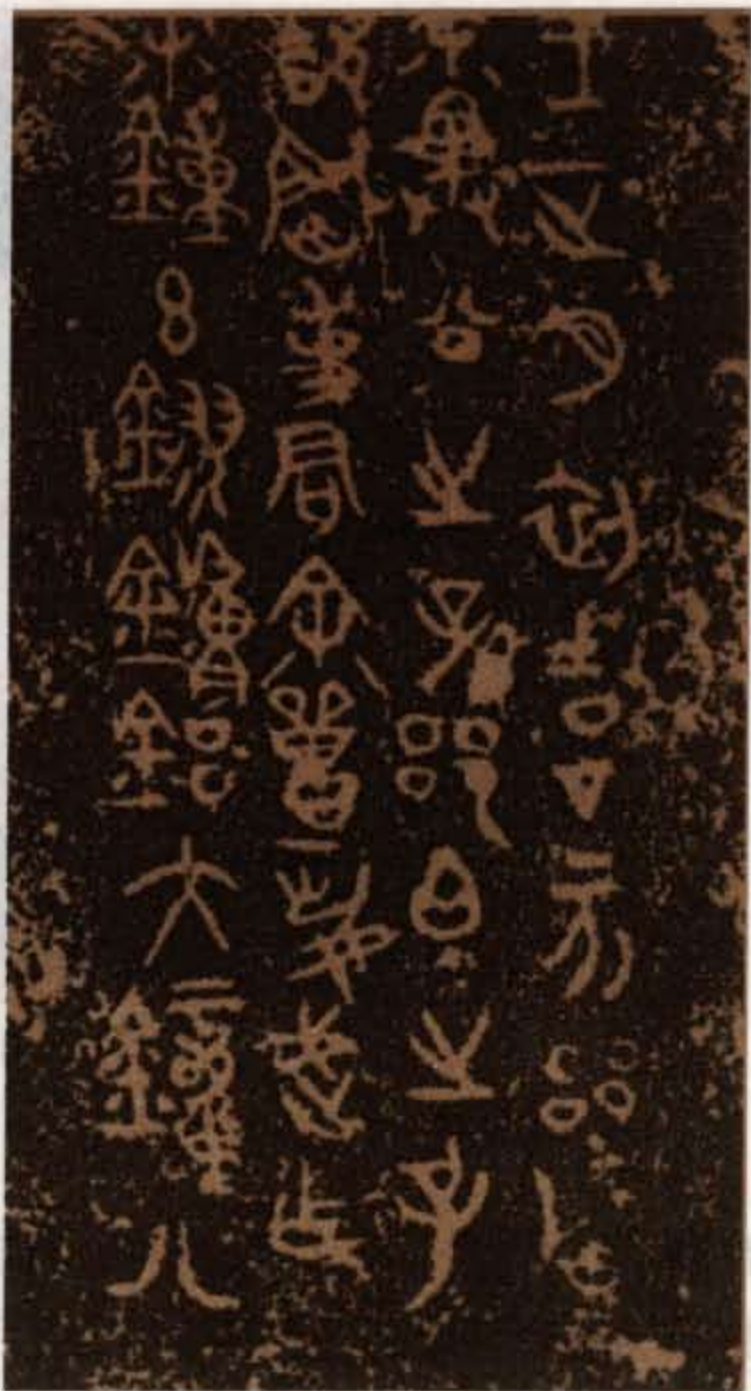 王正月初吉丁亥郘
余畢公之孫郘白之子
頡岡事君余嘼武乍
余鐘玄鏐鏞鋁大鐘八